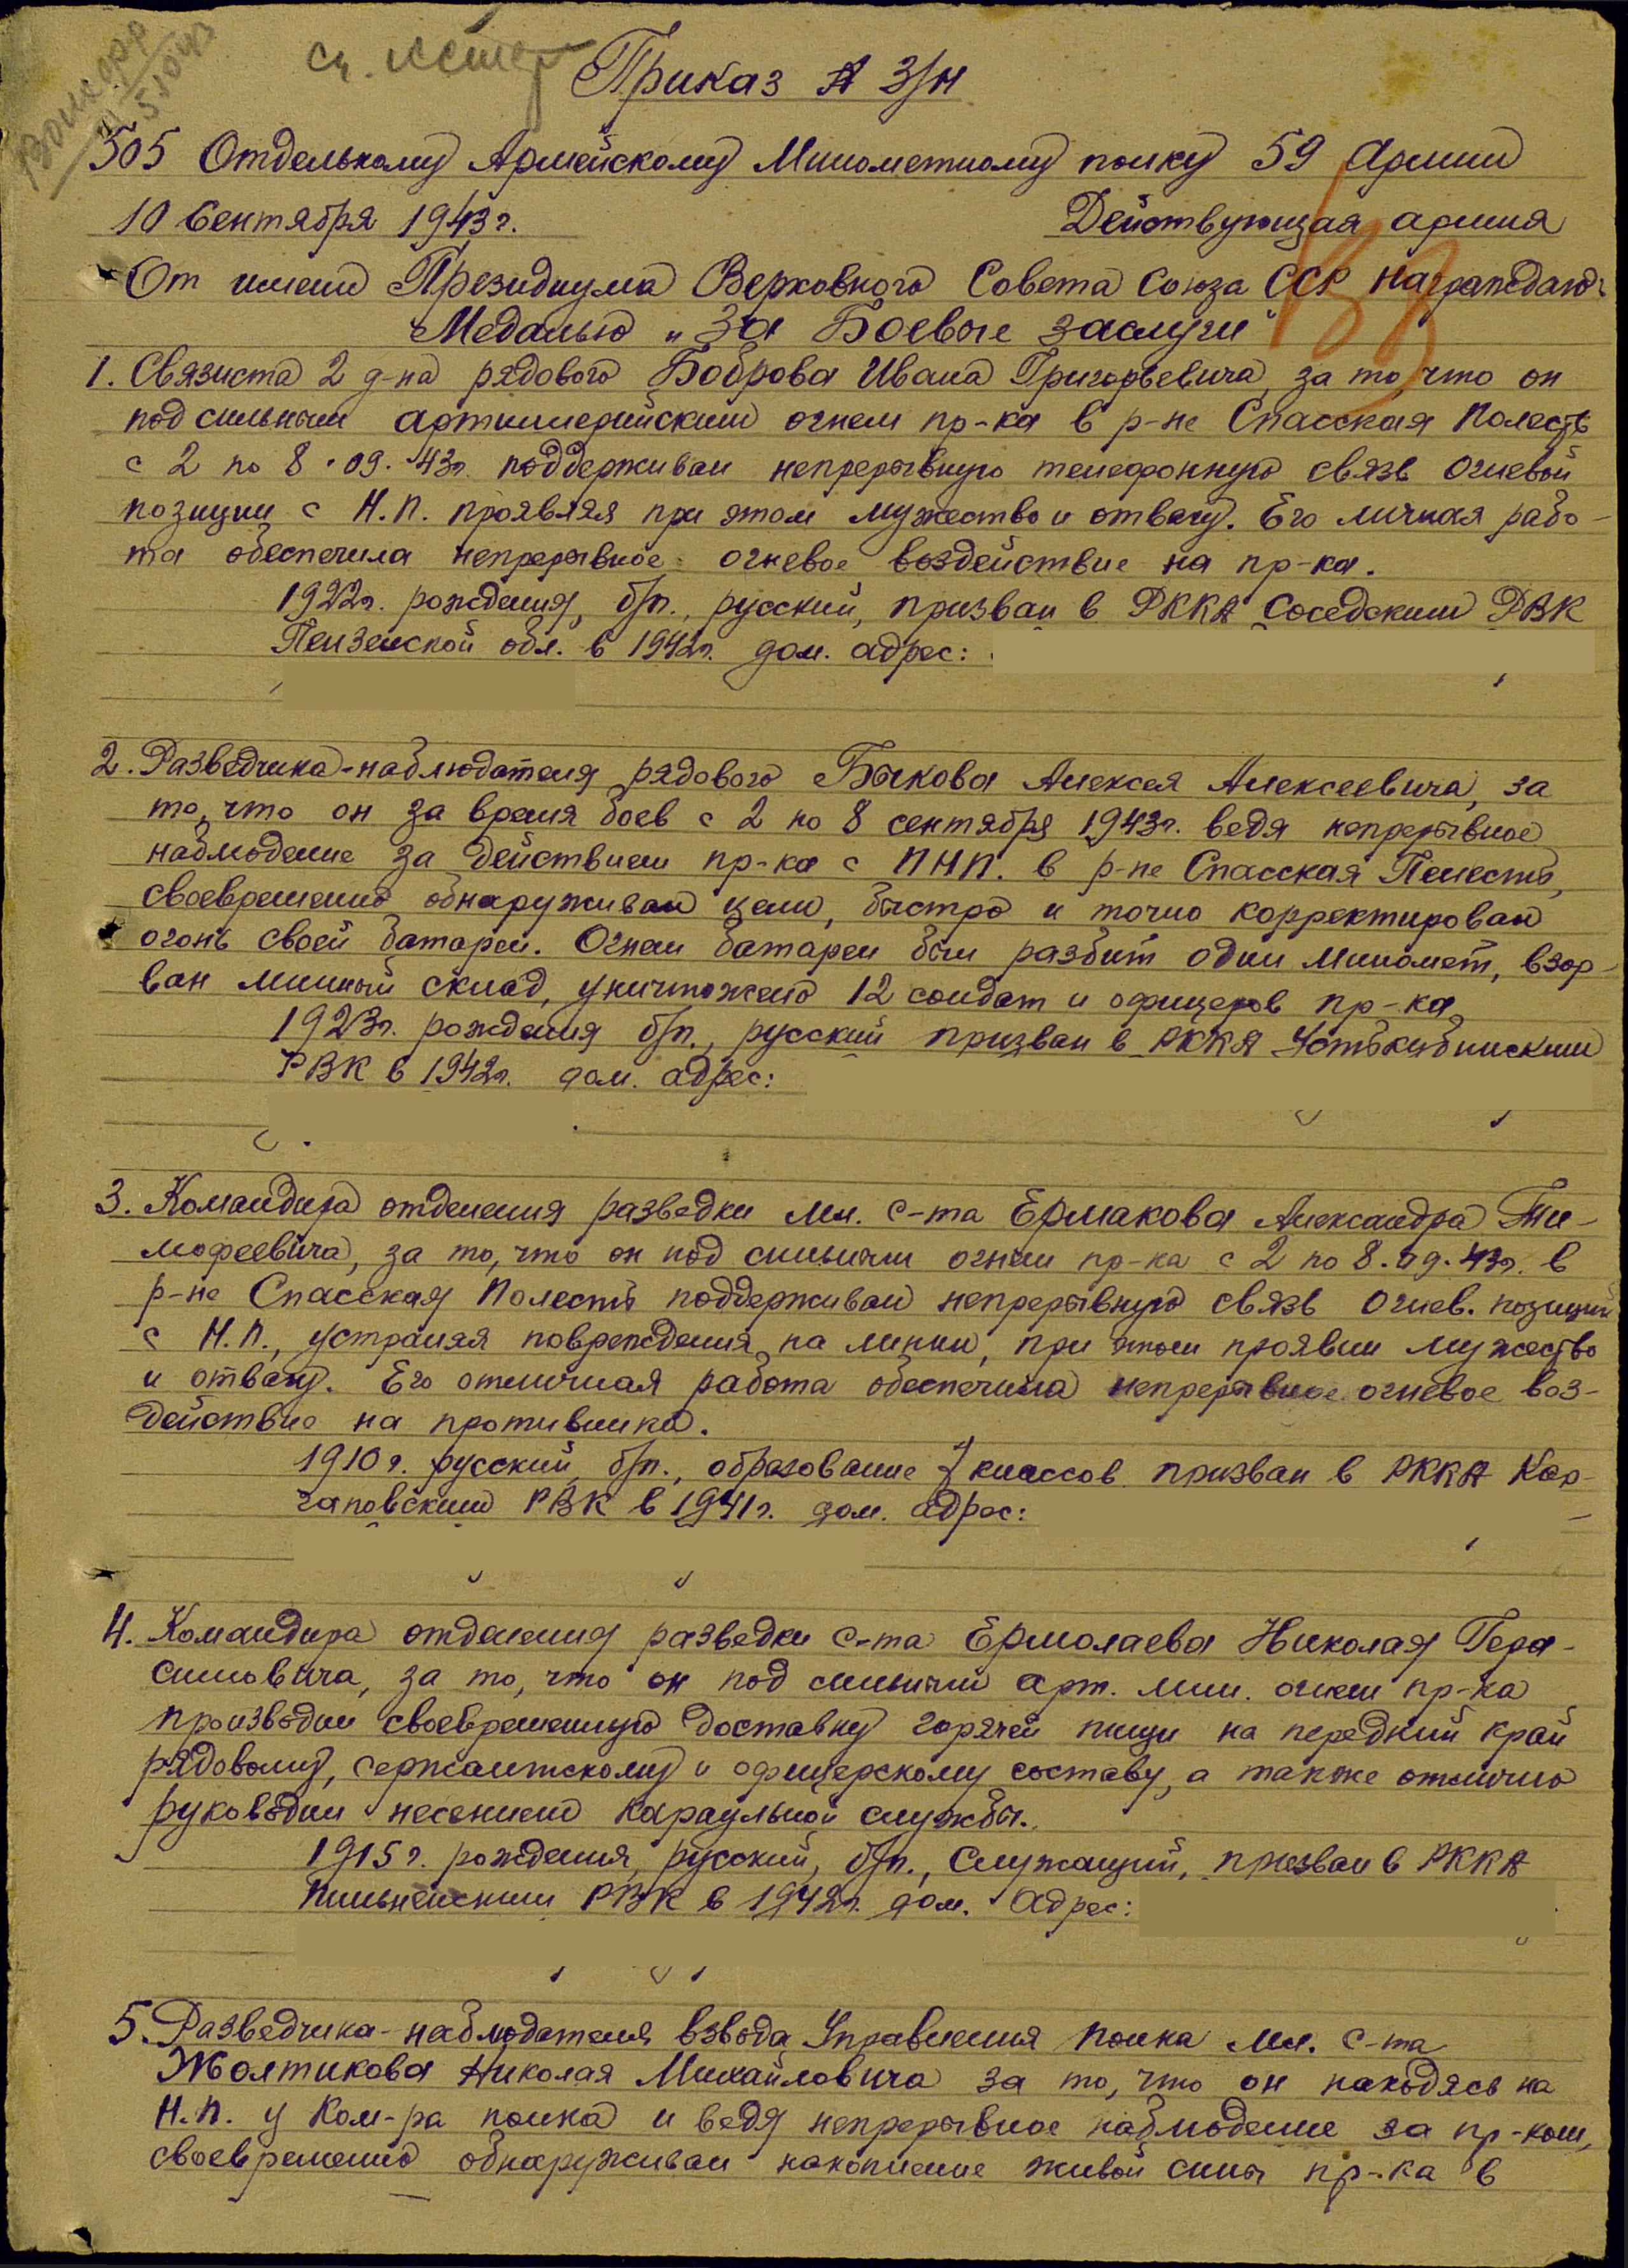 Приказ № 3/н
505 Отдельному Армейскому Минометному полку 59 Армии
10 Сентября 1943г. Действующая армия
От имени Президиума Верховного Совета Союза ССР награждаю:
Медалью „За Боевые заслуги"
1. Связиста 2 д-на рядового Боброва Ивана Григорьевича, за то, что он
под сильным артиллерийским огнем пр-ка в р-не Спасская Полесть
с 2 по 8.09.43г. поддерживал непрерывную телефонную связь огневой
позиции с Н.П. проявляя при этом мужество и отвагу. Его личная рабо-
та обеспечила непрерывное огневое воздействие на пр-ка.
1922г. рождения, б/п., русский, призван в РККА Соседским РВК
Пензенской обл. в 1942г. дом. адрес:
2. Разведчика-наблюдателя рядового Быкова Алексея Алексеевича, за
то, что он за время боев с 2 по 8 сентября 1943г. ведя непрерывное
наблюдение за действием пр-ка с ПНП. в р-не Спасская Полесть,
своевременно обнаруживал цели, быстро и точно корректировал
огонь своей батареи. Огнем батареи был разбит один миномет, взор-
ван минный склад, уничтожено 12 солдат и офицеров пр-ка.
1923г. рождения б/п., русский призван в РККА Устькаби
РВК в 1942г. дом. адрес:
3. Командира отделения разведки мл. с-та Ермакова Александра Ти-
мофеевича, за то, что он под сильным огнем пр-ка с 2 по 8.09.43г. в
р-не Спасская Полесть поддерживал непрерывную связь огнев. позиций
с Н.П., устраняя повреждения на линии, при этом проявил мужество
и отвагу. Его отличная работа обеспечила непрерывное огневое воз-
действие на противника.
1910г. русский, б/п., образование 7 классов призван в РККА Кор-
чаповским РВК в 1941г. дом. адрес:
4. Командира отделения разведки с-та Ермолаева Николая Гера-
симовича, за то, что он под сильным арт. мин. огнем пр-ка
производил своевременную доставку горячей пищи на передний край
рядовому, сержантскому и офицерскому составу, а также отлично
руководил несением караульной службы.
1915г. рождения, русский, б/п., служащий, призван в РККА
Пильненским РВК в 1942г. дом. Адрес:
5. Разведчика-наблюдателя взвода Управления полка мл. с-та
Жолтикова Николая Михайловича за то, что он находясь на
Н.П. у Ком-ра полка и ведя непрерывное наблюдение за пр-ком,
своевременно обнаруживал накопление живой силы пр-ка в